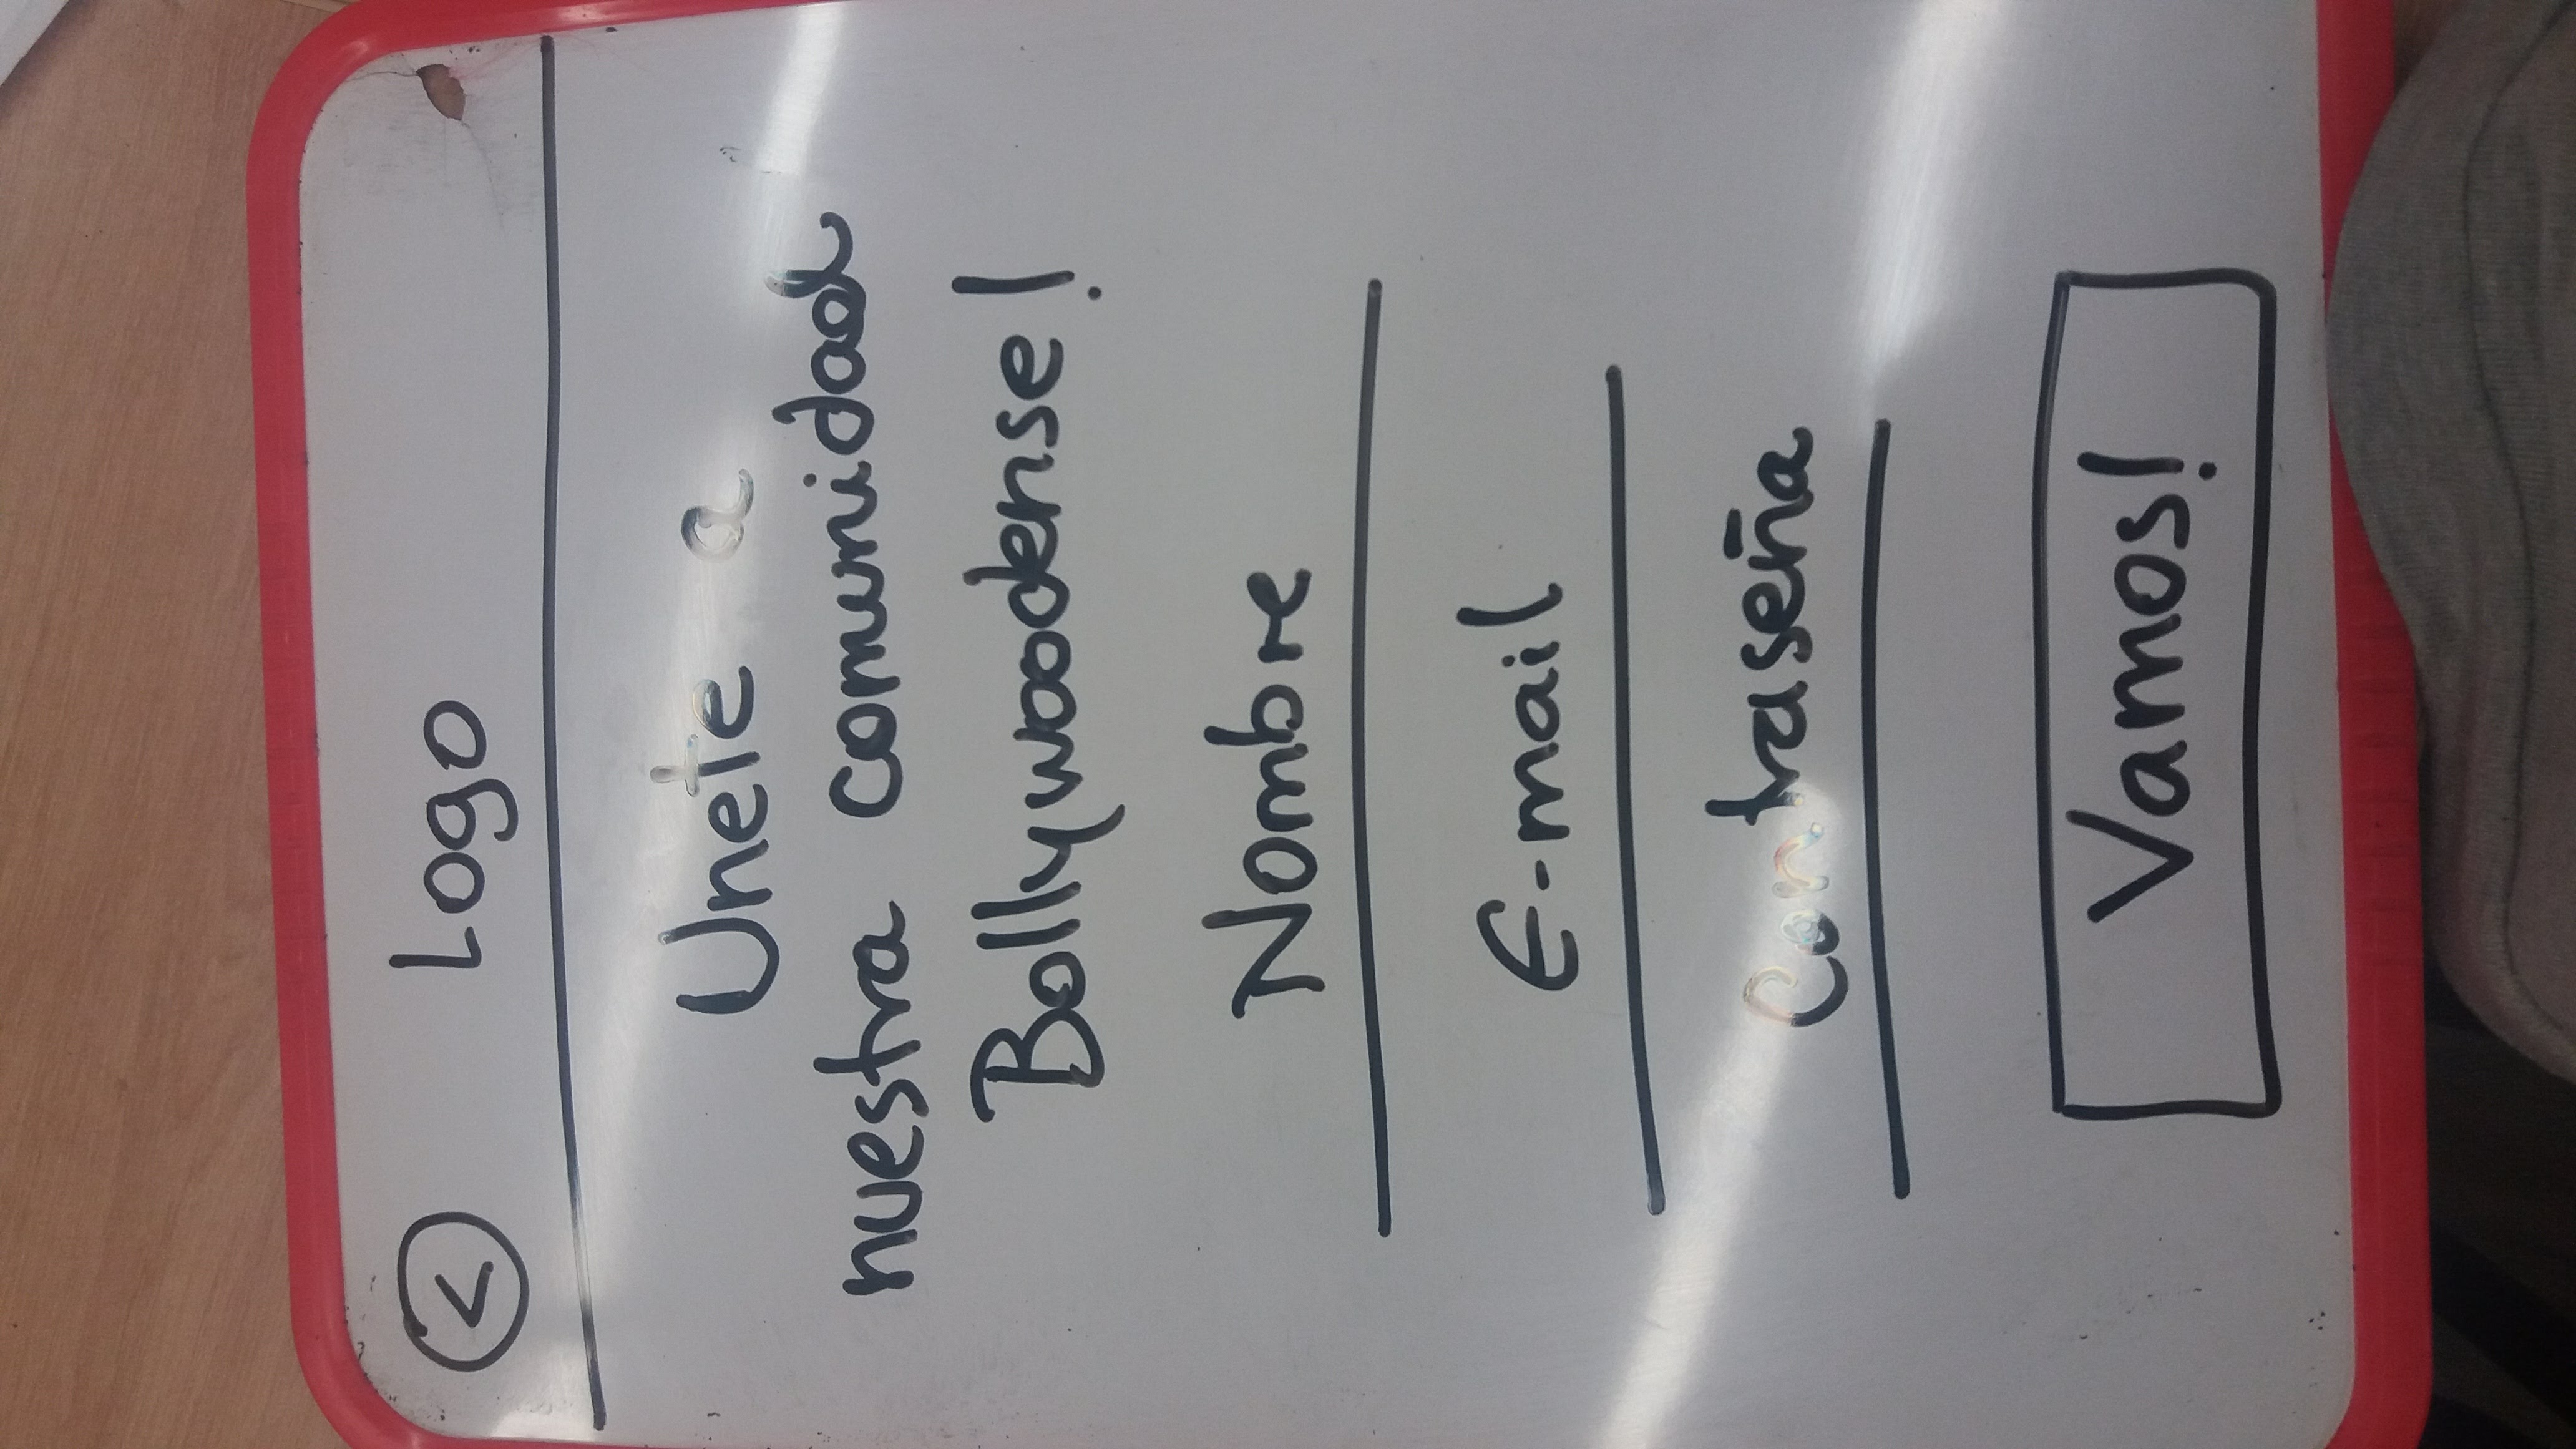 < Logo
Unete a
nuestra comunidad
Bollywoodense!
Nombre
E-mail
Contraseña
Vamos!